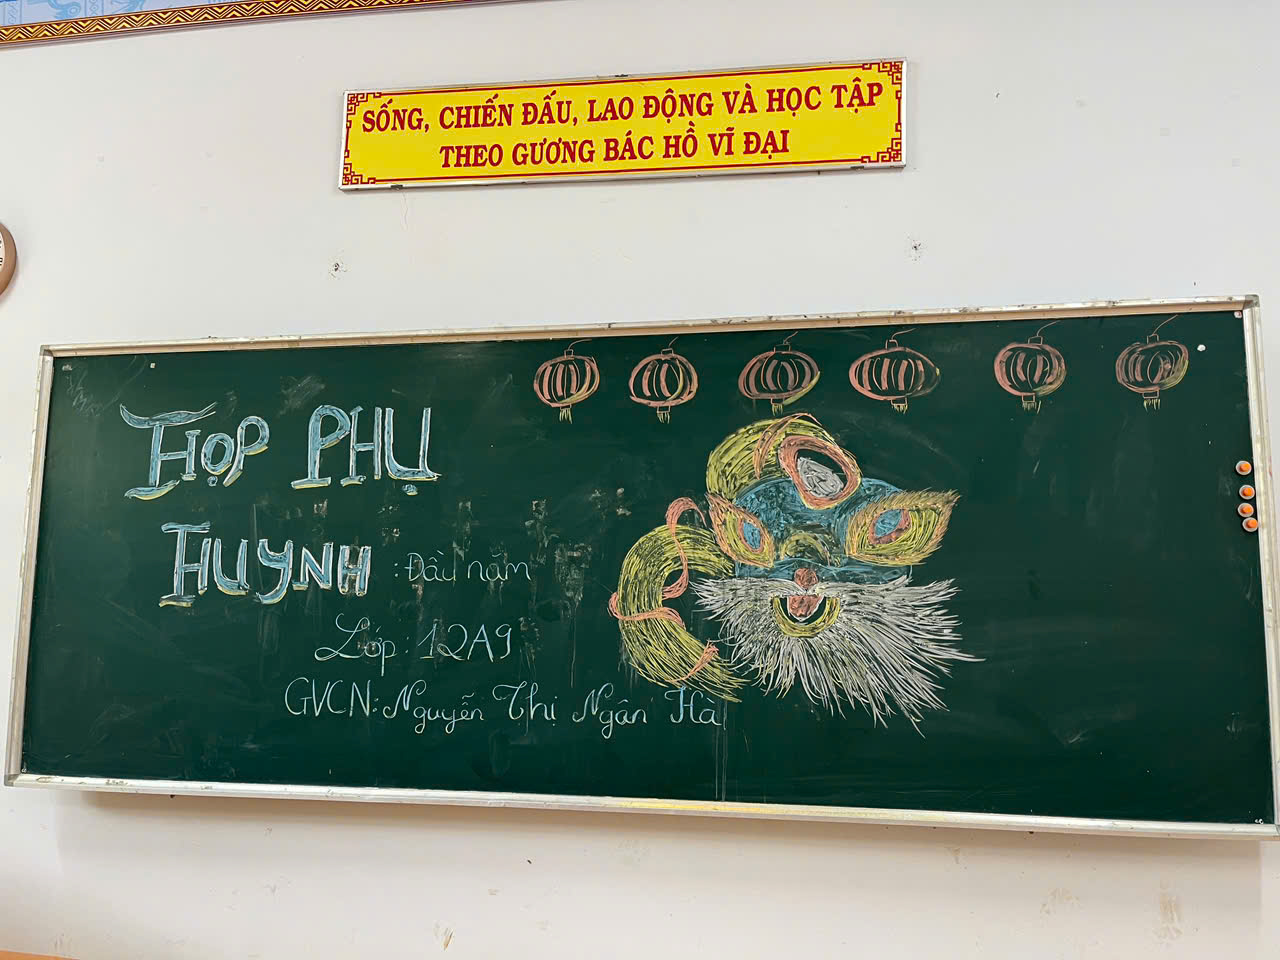 SỐNG, CHIẾN ĐẤU, LAO ĐỘNG VÀ HỌC TẬP
THEO GƯƠNG BÁC HỒ VĨ ĐẠI
HỌP PHỤ
HUYNH : Đầu năm
Lớp: 12A9
GVCN: Nguyễn Thị Ngân Hà